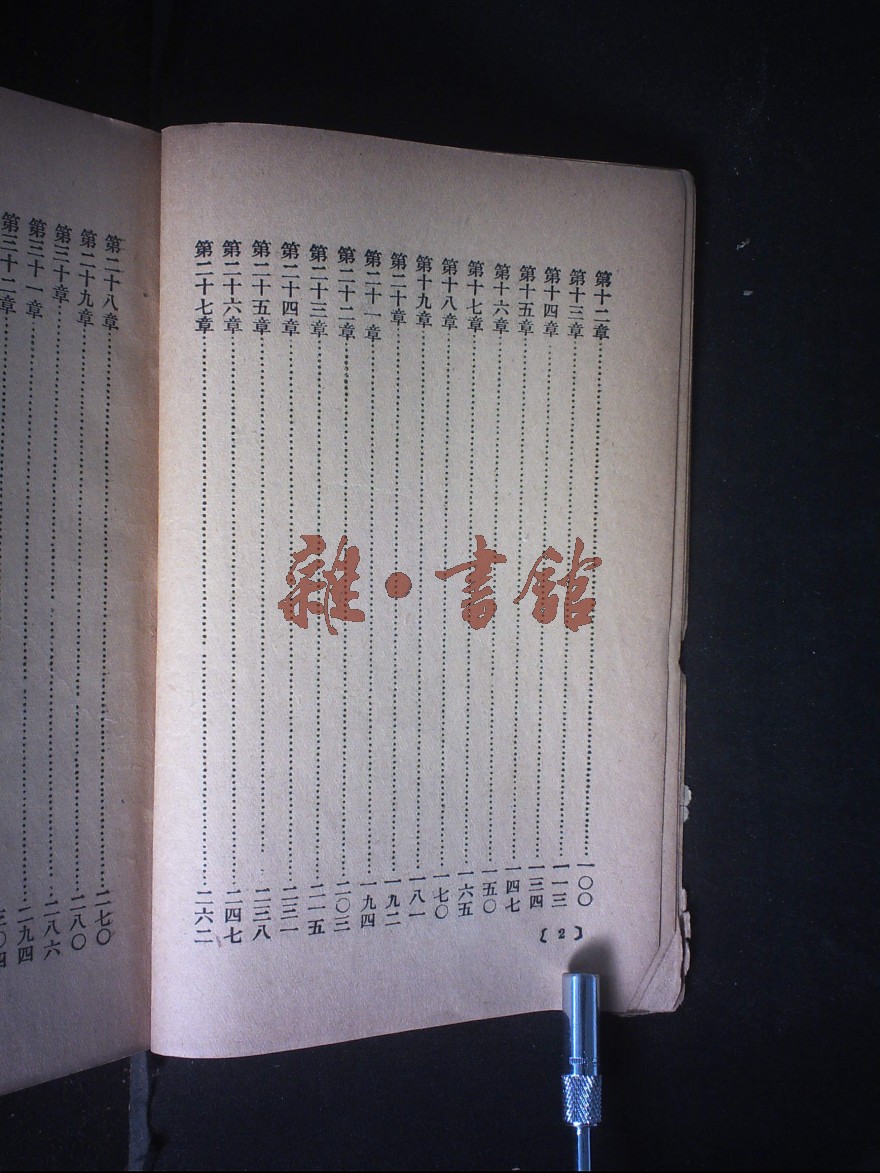 第十二章……一〇〇
第十三章……一一三
第十四章……一三四
第十五章……一四七
第十六章……一五〇
第十七章……一六五
第十八章……一七〇
第十九章……一八一
第二十章……一九二
第二十一章……一九四
第二十二章……二〇三
第二十三章……二一五
第二十四章……二三一
第二十五章……二三八
第二十六章……二四七
第二十七章……二六二
〔2〕
第二十八章……二七〇
第二十九章……二八〇
第三十章……二八六
第三十一章……二九四
第三十二章……三〇四
雜·書館